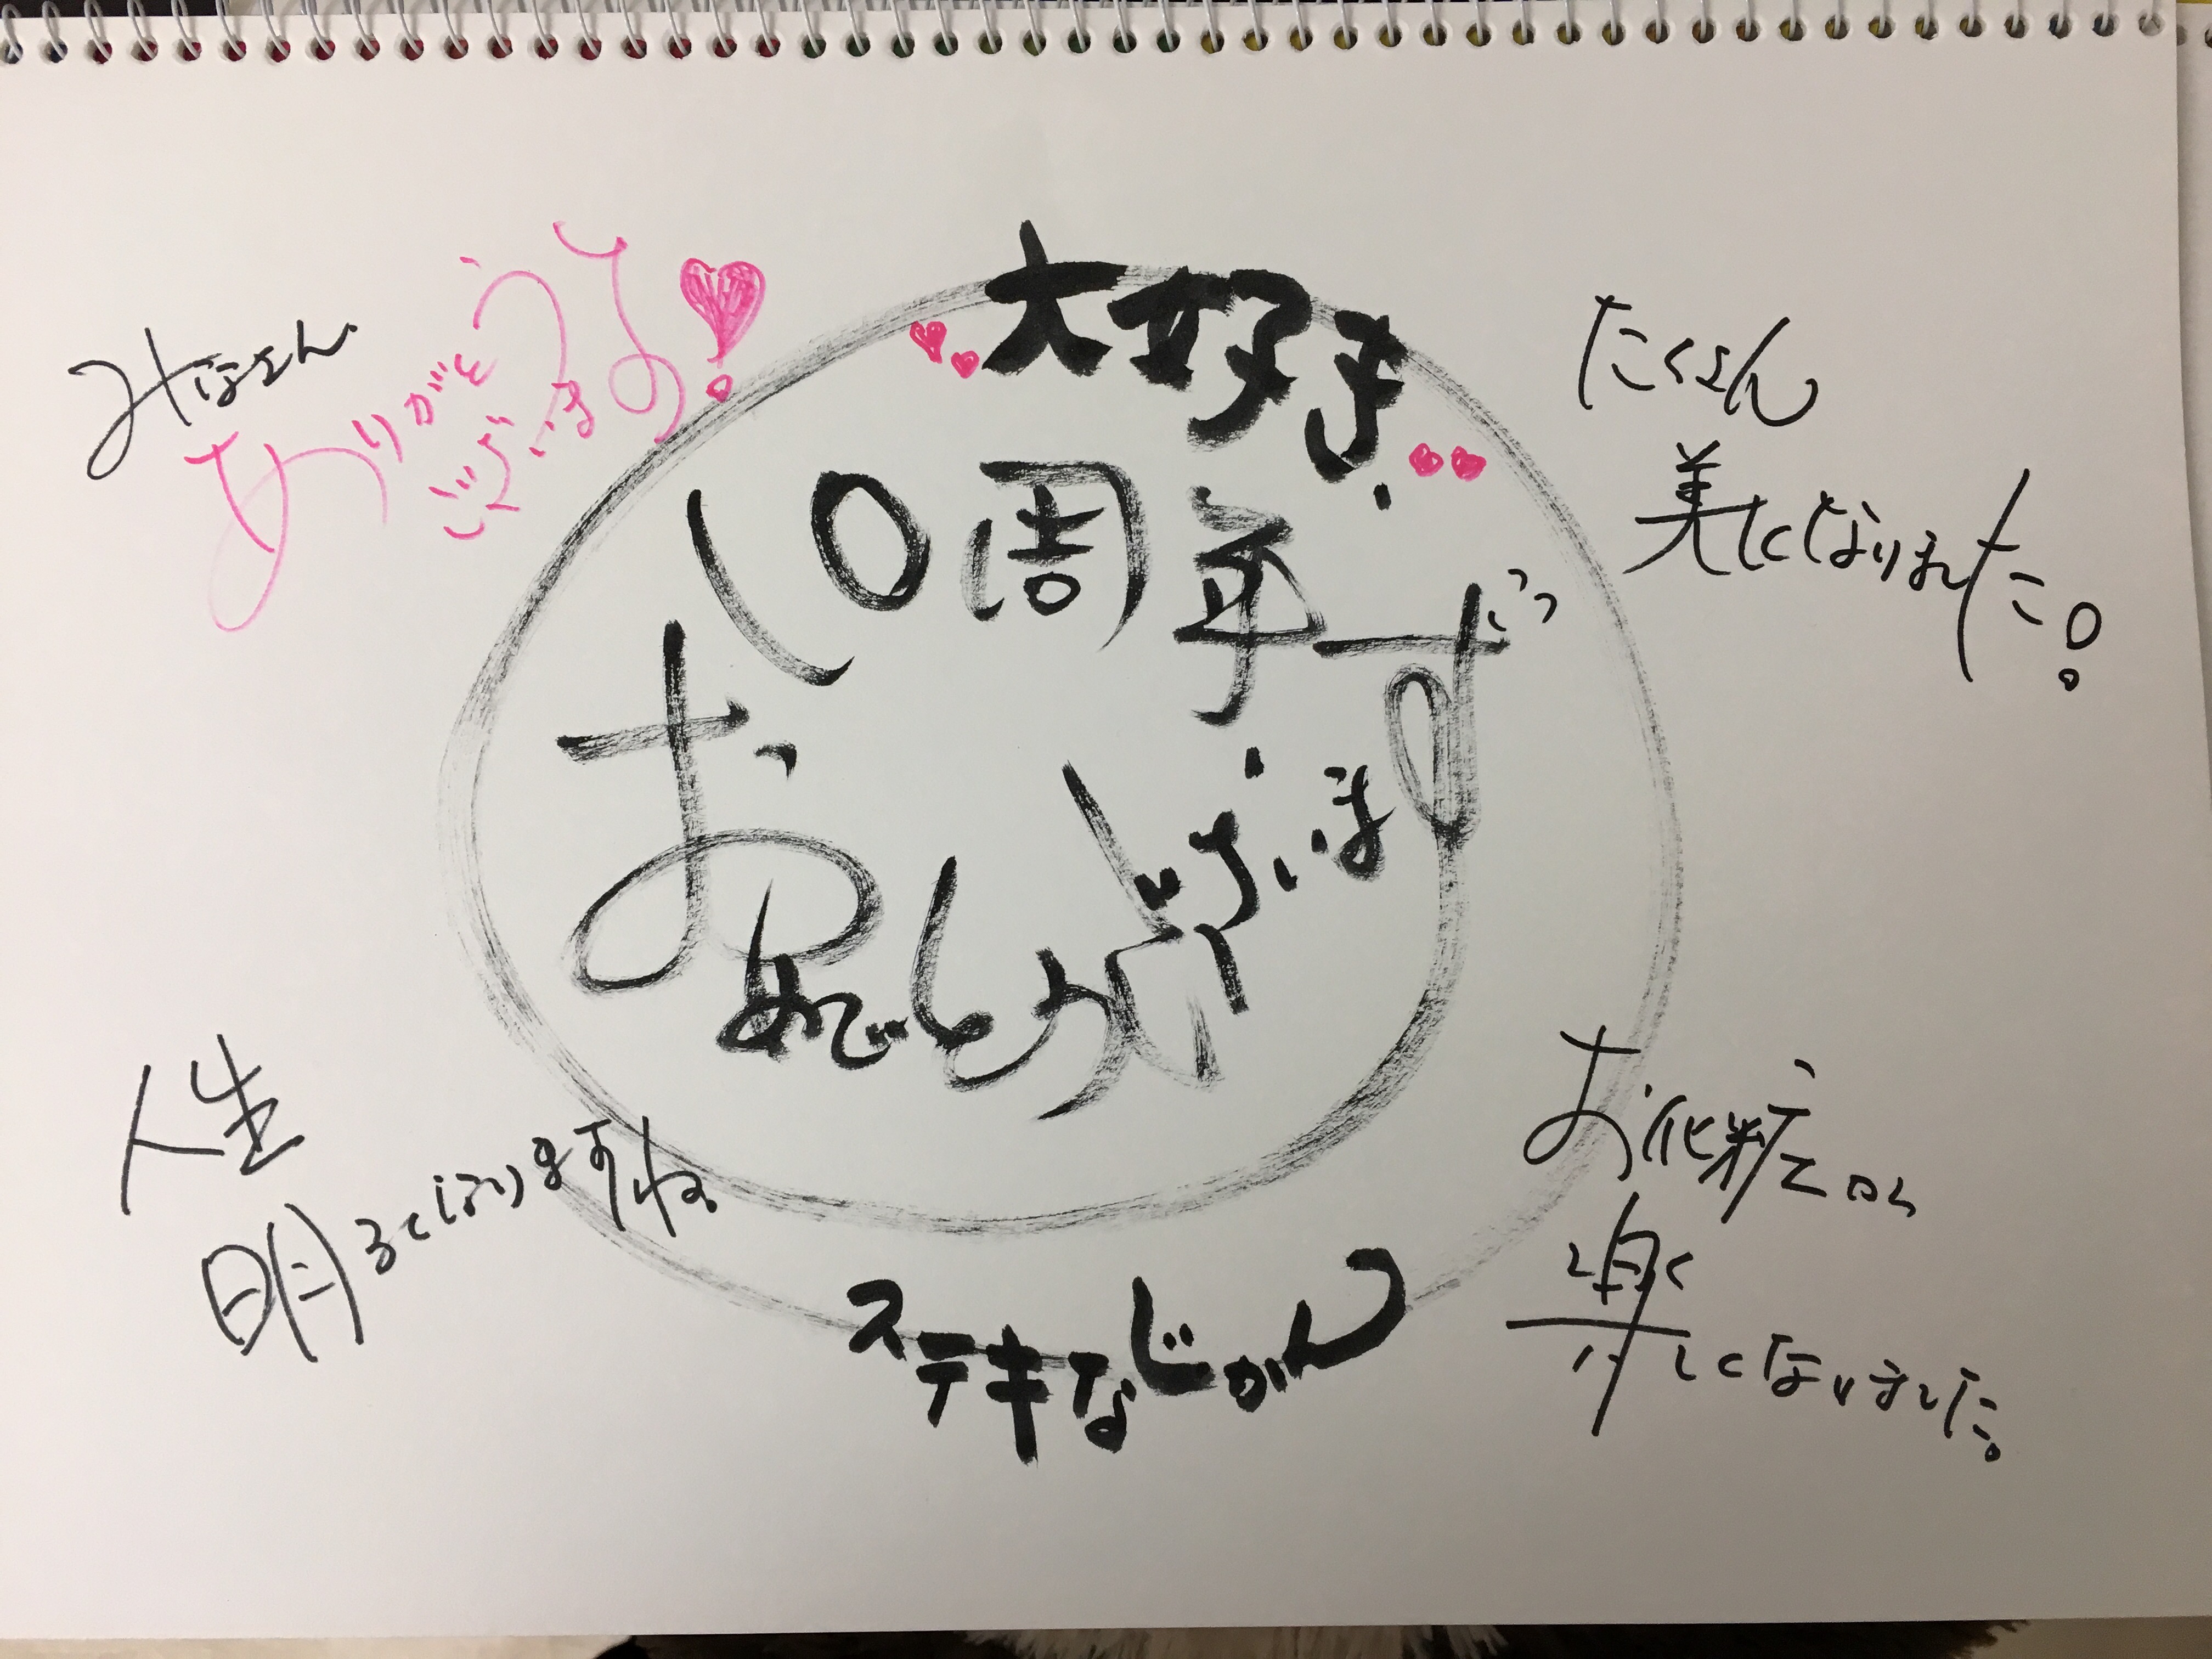 みなさん
ありがとう
ございます
大好き
10周年
おめでとう
ございます
たくさん
美しくなりました!
人生
明るくなりますね
お化粧も
楽しくなりました。
ステキなじかん